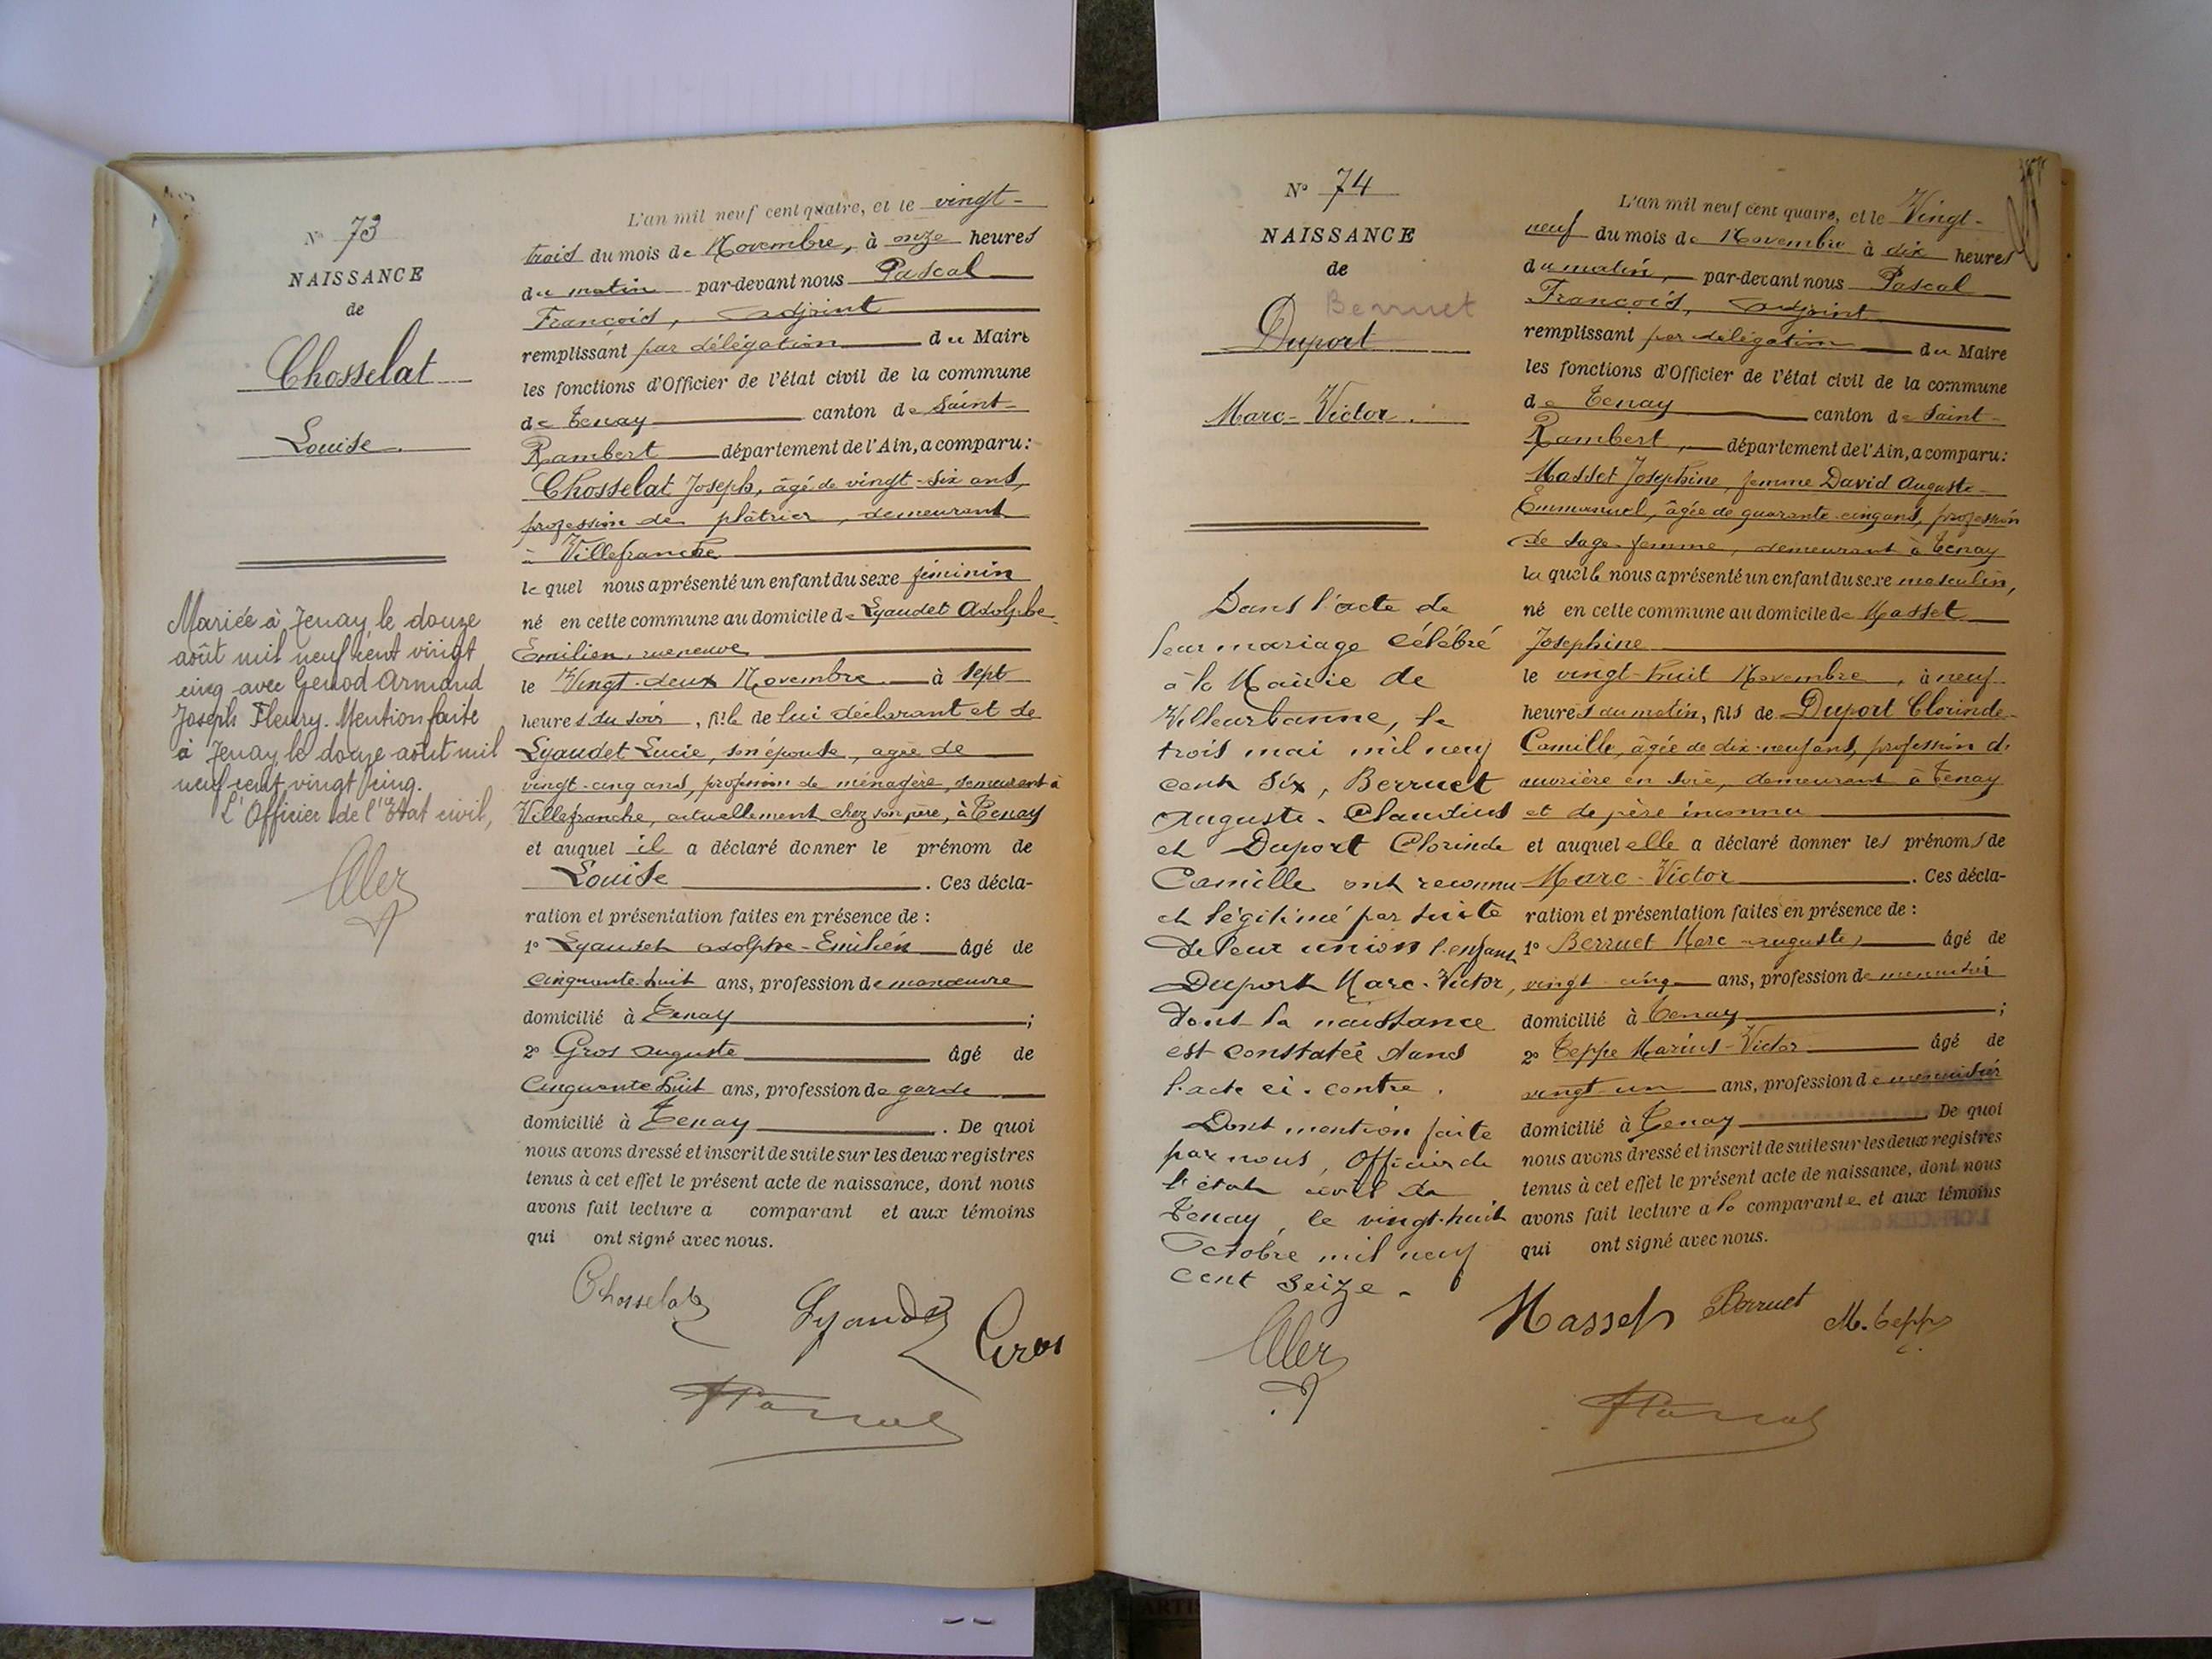 N° 73
NAISSANCE
de
Chosselat
Louise
Mariée à Tenay le douze
août mil neuf cent vingt
cinq avec Genod Armand
Joseph Fleury. Mention faite
à Tenay le douze août mil
neuf cent vingt cinq.
L'Officier de l'Etat civil,
L'an mil neuf cent quatre, et le vingt-
trois du mois de Novembre, à onze heures
du matin par-devant nous Pascal
François, adjoint
remplissant par délégation du Maire
les fonctions d'Officier de l'état civil de la commune
de Tenay canton de Saint-
Rambert département de l'Ain, a comparu :
Chosselat Joseph, âgé de vingt-six ans,
profession de plâtrier, demeurant
à Villefranche
lequel nous a présenté un enfant du sexe féminin
né en cette commune au domicile de Lyaudet Adolphe
Emilien, rue neuve
le Vingt-deux Novembre à sept
heures du soir, fille de lui déclarant et de
Lyaudet Lucie, son épouse, agée de
vingt-cinq ans, profession de ménagère, demeurant à
Villefranche, actuellement chez son père, à Tenay
et auquel il a déclaré donner le prénom de
Louise. Ces décla-
ration et présentation faites en présence de :
1° Lyaudet Adolphe-Emilien âgé de
cinquante-huit ans, profession de manœuvre
domicilié à Tenay ;
2° Gros Auguste âgé de
Cinquante huit ans, profession de garde
domicilié à Tenay. De quoi
nous avons dressé et inscrit de suite sur les deux registres
tenus à cet effet le présent acte de naissance, dont nous
avons fait lecture a comparant et aux témoins
qui ont signé avec nous.
Chosselat
Lyaudet
Gros
Pascal
N° 74
NAISSANCE
de
Berruet
Duport
Marc-Victor.
Dans l'acte de
leur mariage célébré
à la Mairie de
Villeurbanne, le
trois mai mil neuf
cent six, Berruet
Auguste-Claudius
et Duport Clorinde
Camille ont reconnu
et légitimé par suite
de leur union l'enfant
Duport Marc-Victor,
dont la naissance
est constatée dans
l'acte ci-contre.
Dont mention faite
par nous, Officier de
l'état civil de
Tenay, le vingt-huit
Octobre mil neuf
cent seize.
L'an mil neuf cent quatre, et le Vingt-
neuf du mois de Novembre à dix heures
du matin, par-devant nous Pascal
François, adjoint
remplissant par délégation du Maire
les fonctions d'Officier de l'état civil de la commune
de Tenay canton de Saint-
Rambert, département de l'Ain, a comparu :
Masset Josephine, femme David Auguste-
Emmanuel, âgée de quarante-cinq ans, profession
de sage-femme, demeurant à Tenay
laquelle nous a présenté un enfant du sexe masculin,
né en cette commune au domicile de Masset
Josephine
le vingt-huit Novembre, à neuf
heures du matin, fils de Duport Clorinde-
Camille, âgée de dix-neuf ans, profession d'
ouvrière en soie, demeurant à Tenay
et de père inconnu
et auquel elle a déclaré donner les prénoms de
Marc-Victor. Ces décla-
ration et présentation faites en présence de :
1° Berruet Marc-Auguste, âgé de
vingt-cinq ans, profession de menuisier
domicilié à Tenay ;
2° Teppe Marius-Victor âgé de
vingt-un ans, profession de menuisier
domicilié à Tenay. De quoi
nous avons dressé et inscrit de suite sur les deux registres
tenus à cet effet le présent acte de naissance, dont nous
avons fait lecture à la comparante et aux témoins
qui ont signé avec nous.
Masset
Berruet
M. Teppe
Pascal